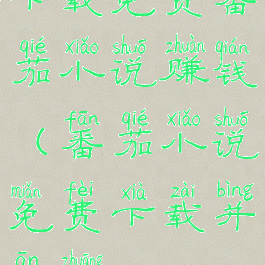 下载免费番
qié xiǎo shuō zhuàn qián
茄小说赚钱
fān qié xiǎo shuō
（番茄小说
miǎn fèi xià zài bìng
免费下载并
ān zhuāng